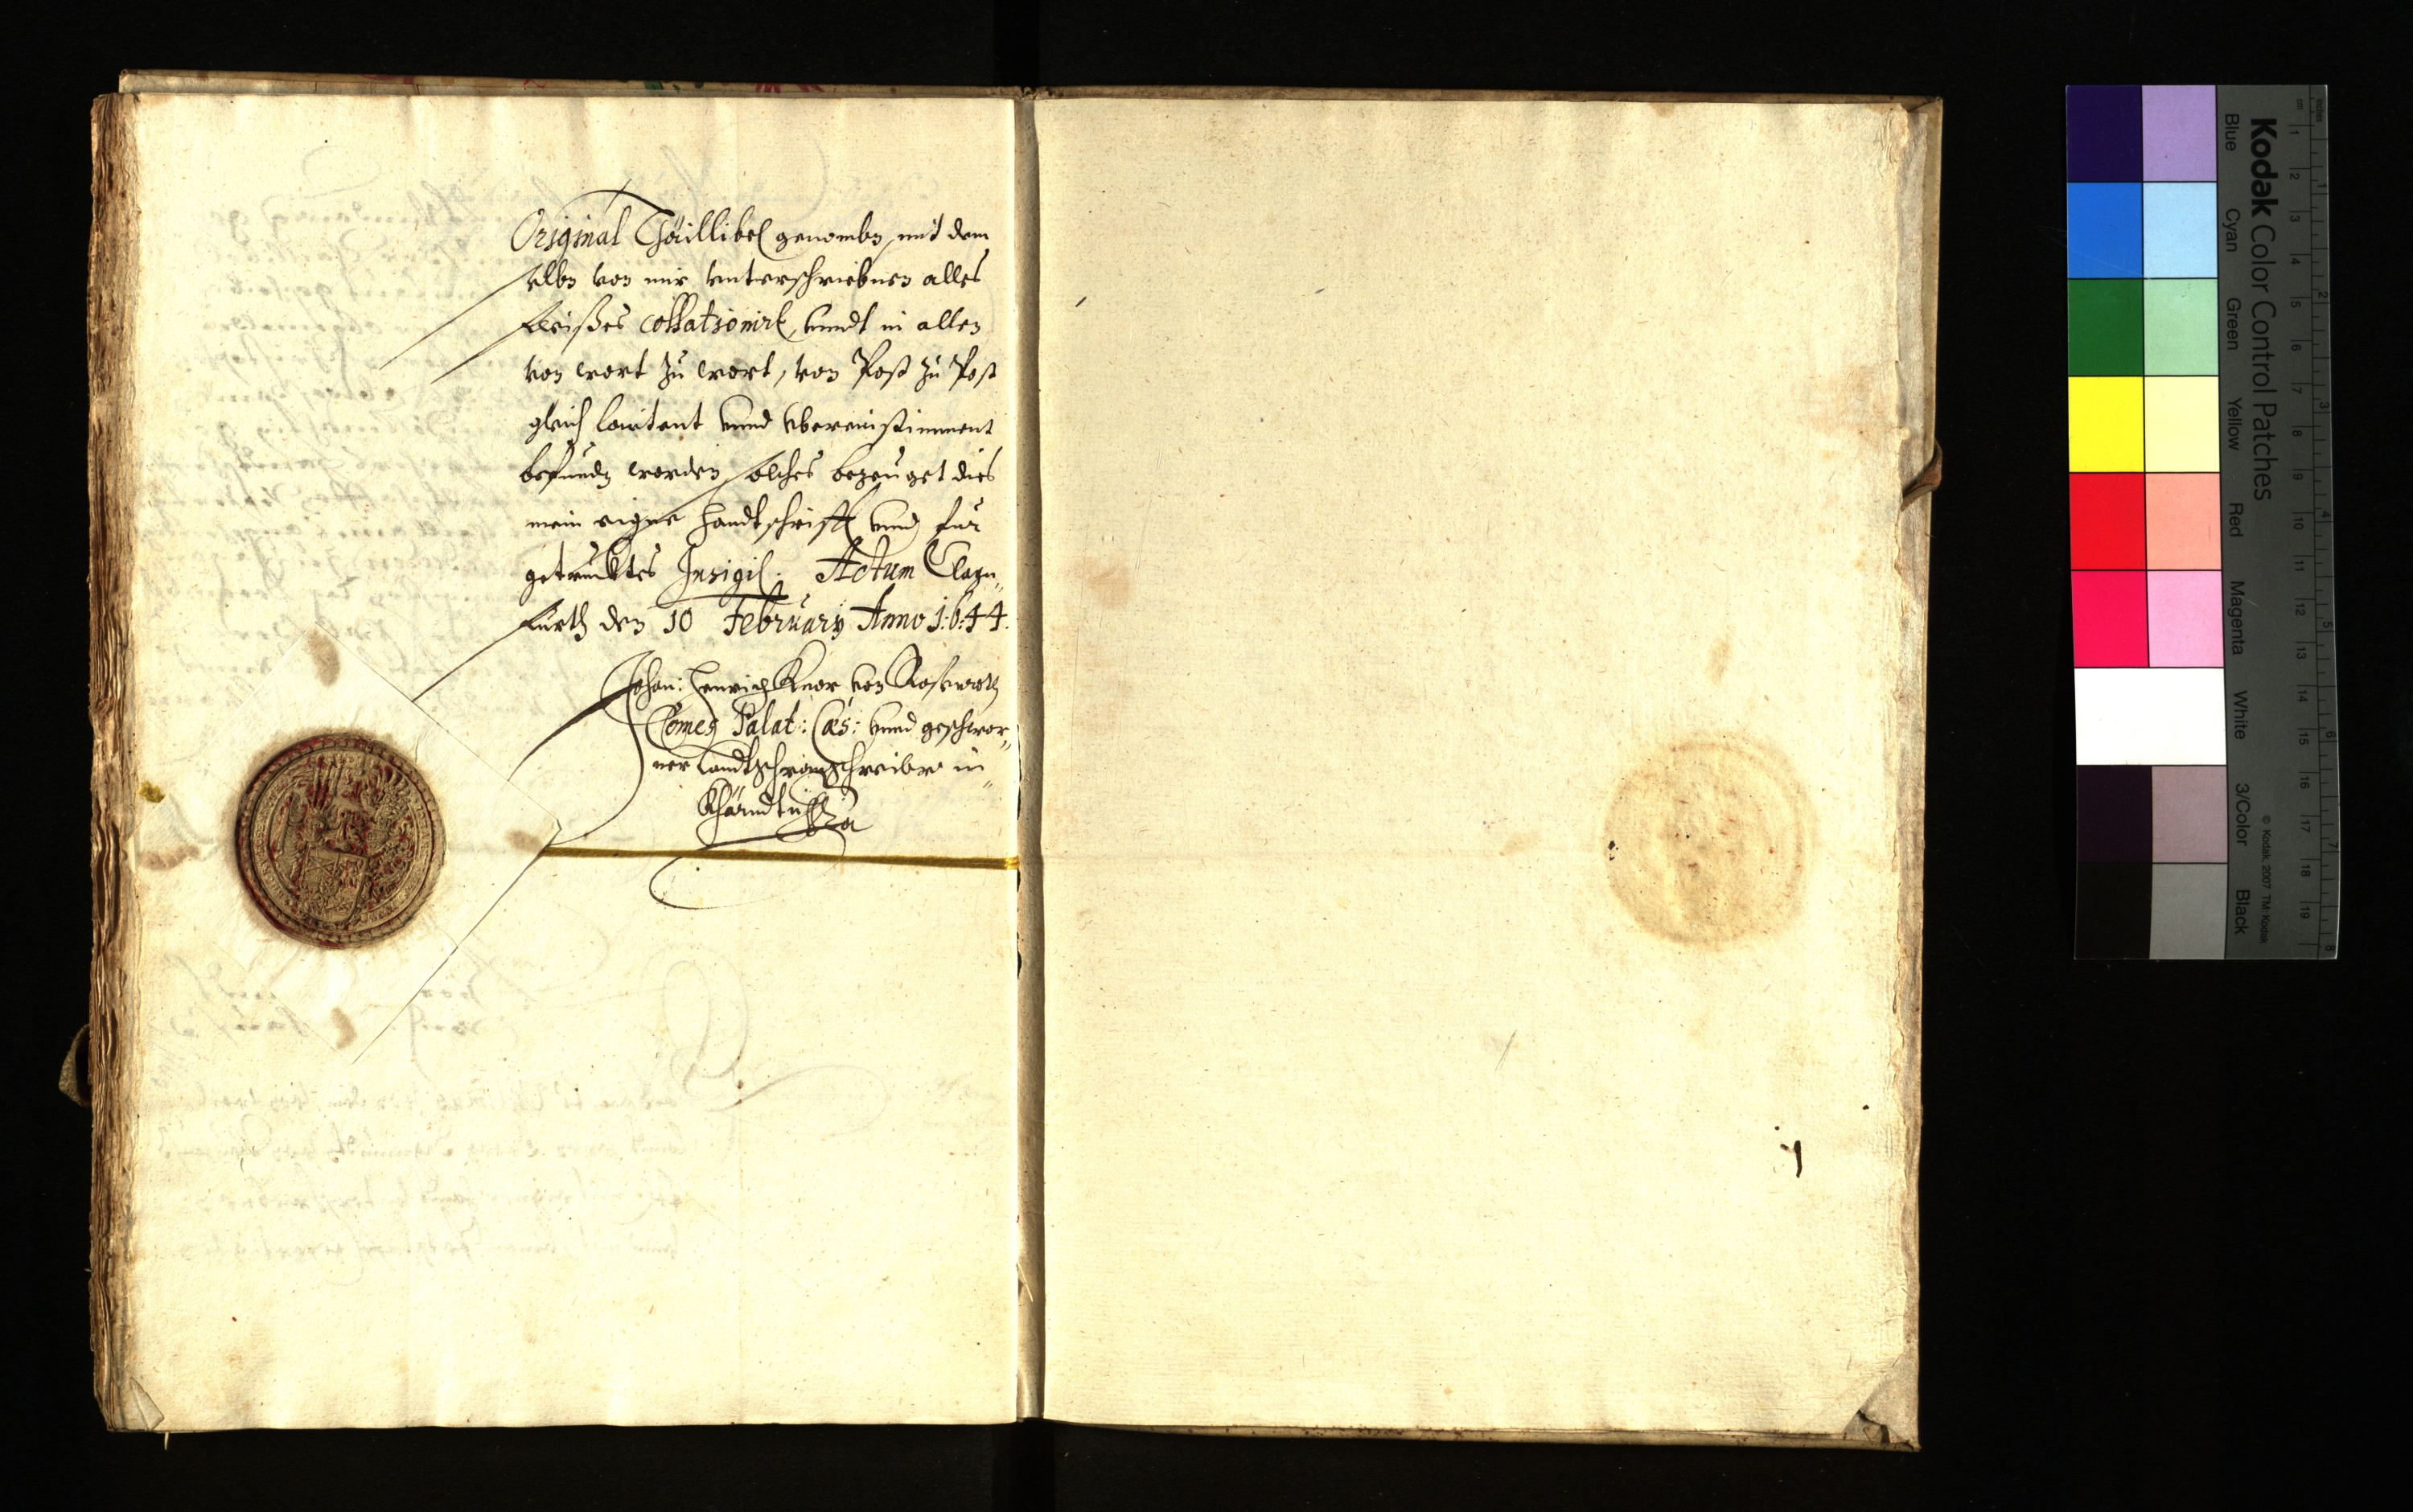 Original Thäillibel genomben, mit dem
selben von mir unterschriebnen alles
fleißes collationirt, unndt in allen
von wort zu wort, von Post zu Post
gleich lautent unnd übereinstimment
befunden worden, solches bezeuget dies
mein eigne Handtschrifft unnd für
getrucktes Insigil. Actum Clagn„
furth den 10 February Anno 1.6.44.
Johan: Henrich Knor von
Comes Palat: Cæs: unnd geschwor„
ner Landtschranschreiber in
Khärndten
Kodak Color Control Patches
Blue Cyan Green Yellow Red Magenta White 3/Color Black
© Kodak, 2007 TM: Kodak
inches 1 2 3 4 5 6 7 8
cm 1 2 3 4 5 6 7 8 9 10 11 12 13 14 15 16 17 18 19